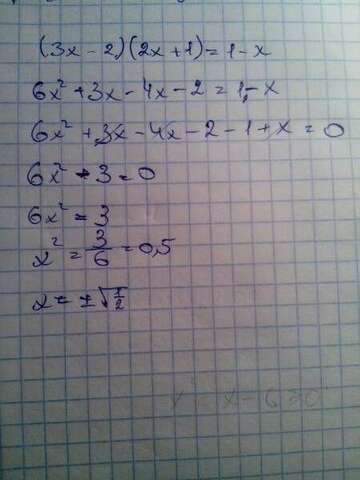 (3x - 2)(2x + 1) = 1 - x
6x² + 3x - 4x - 2 = 1 - x
6x² + 3x - 4x - 2 - 1 + x = 0
6x² - 3 = 0
6x² = 3
x² = 3/6 = 0,5
x = ±√1/2